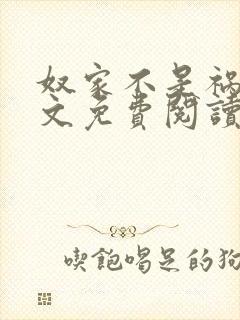 奴家不是祸
文免費閱讀
喫飽喝足的狗